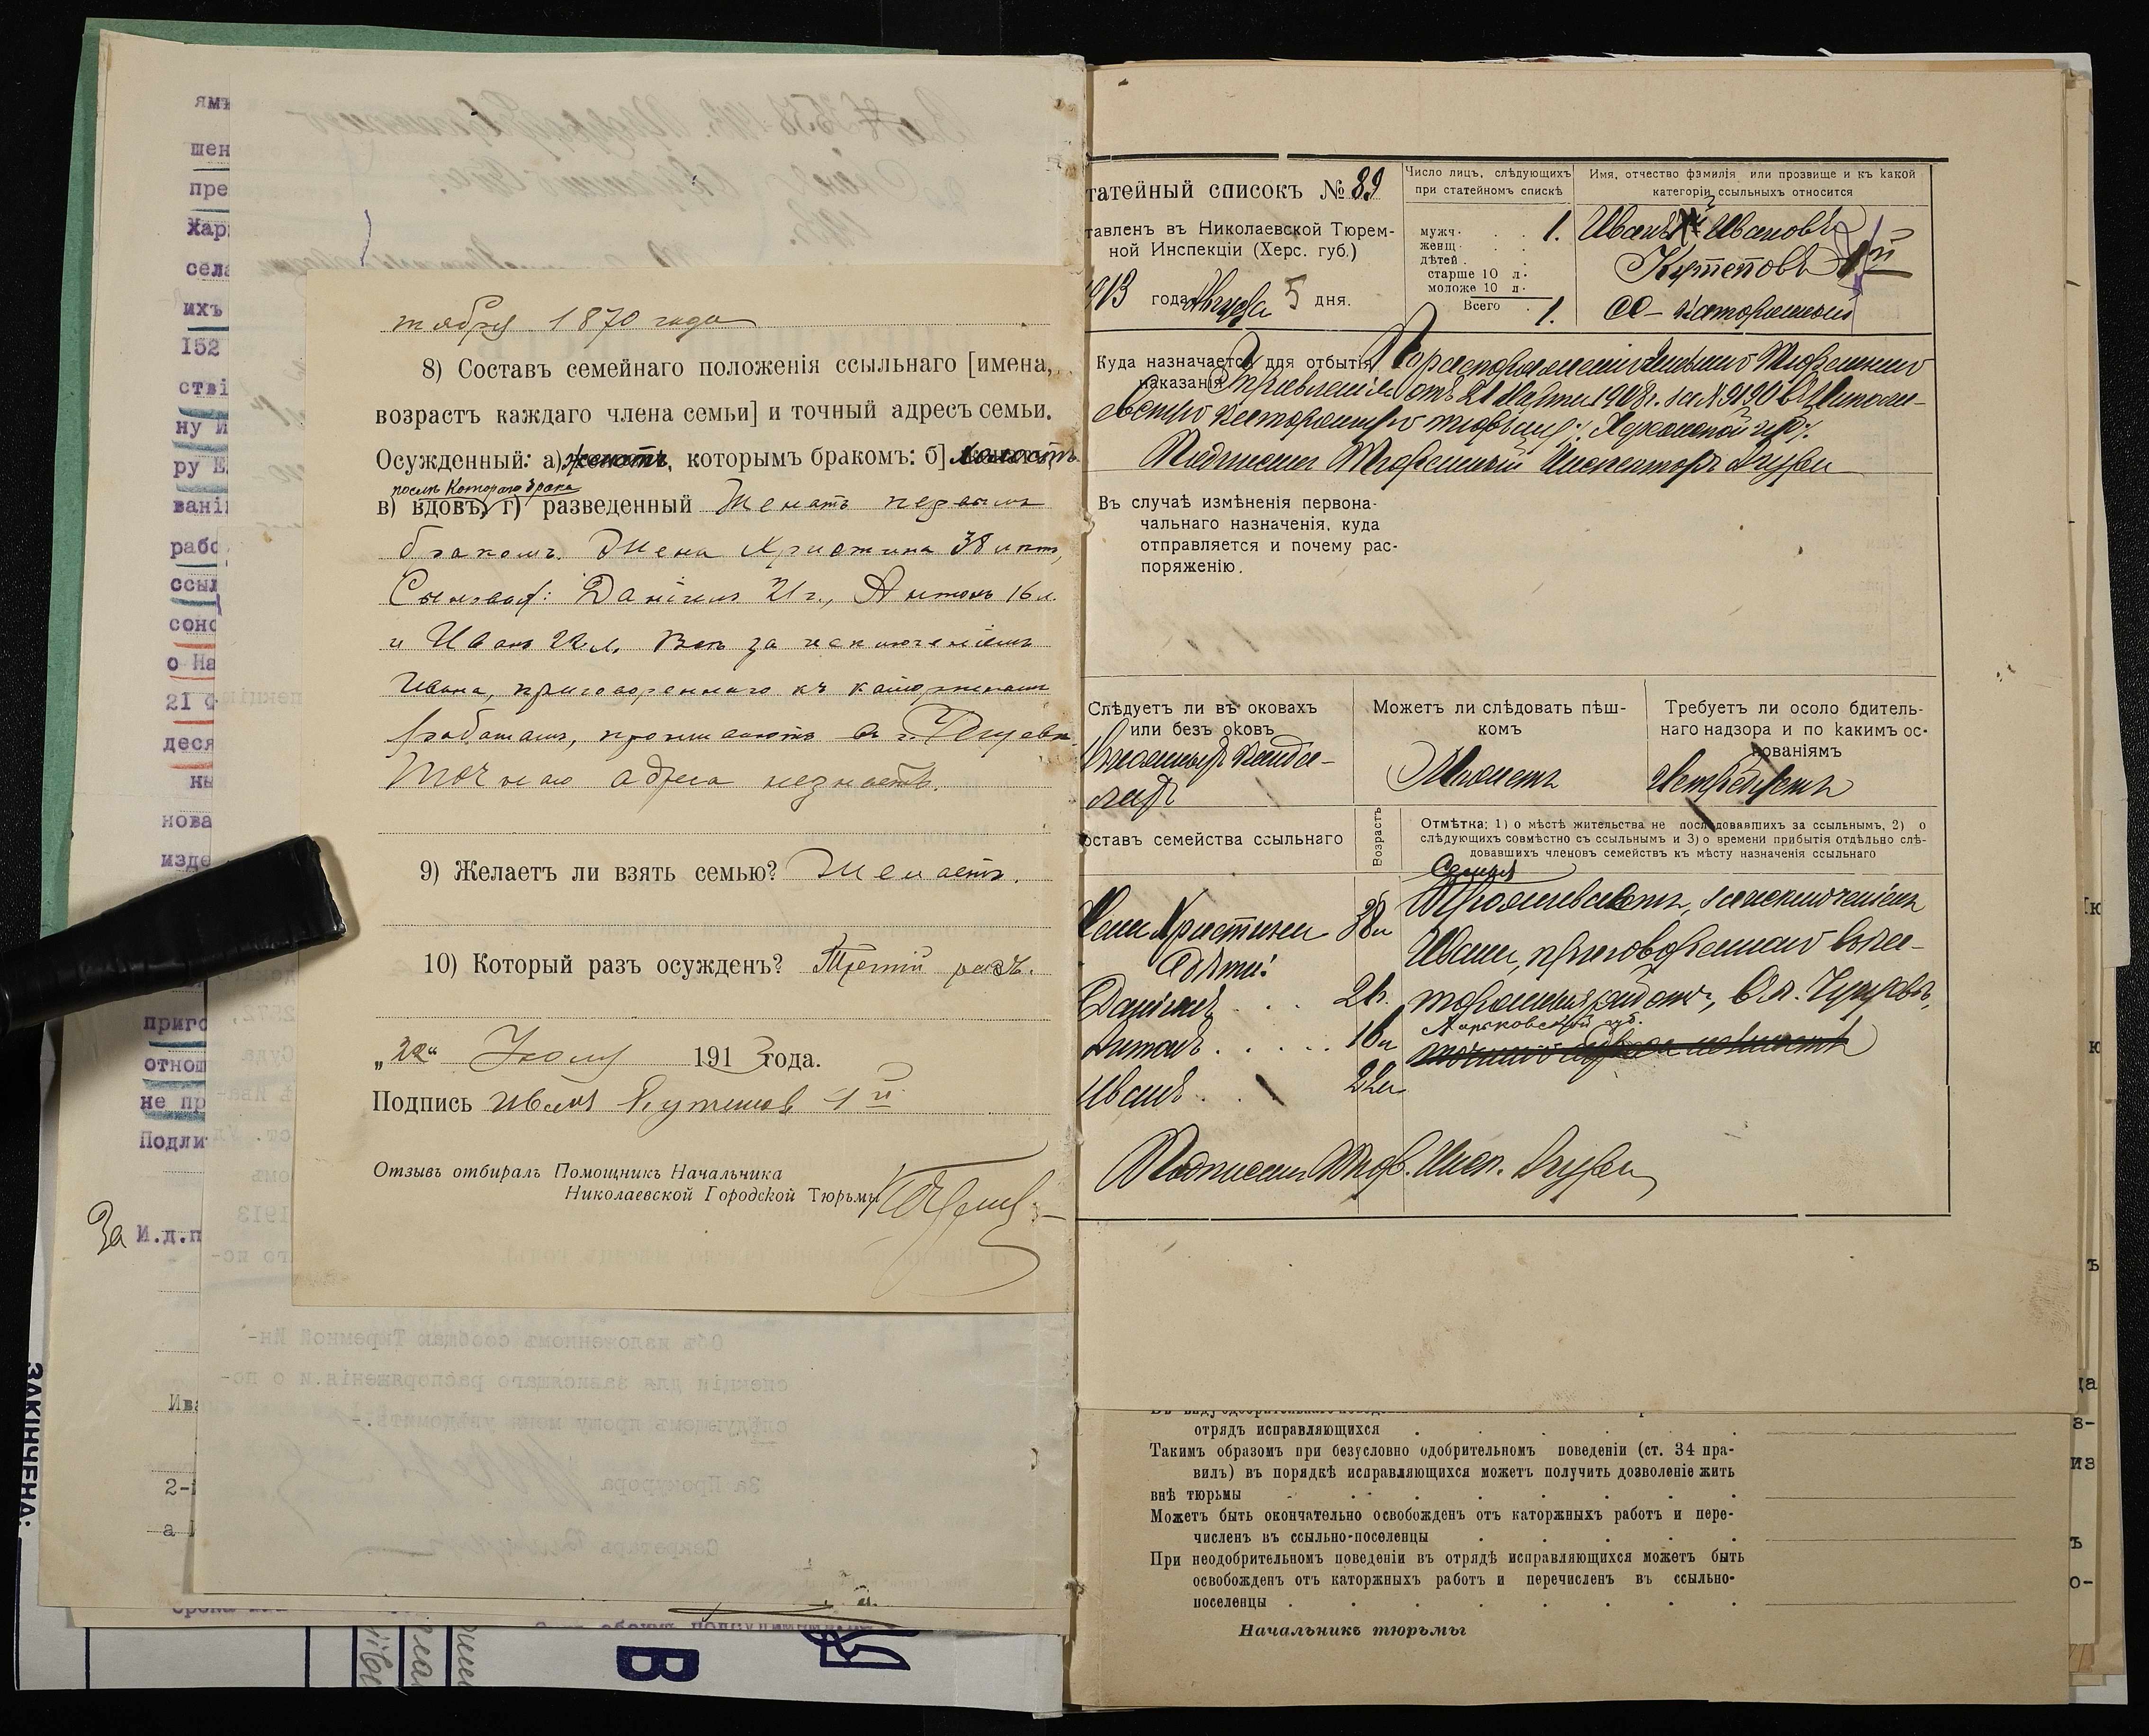 тября 1870 года
8) Составъ семейнаго положенія ссыльнаго [имена,
возрастъ каждаго члена семьи] и точный адресъ семьи.
Осужденный: а) женатъ, которымъ бракомъ: б] холостъ
послѣ котораго брака
в) вдовъ, г) разведенный Женатъ первымъ
бракомъ. Жена Христина 38 лѣтъ,
Сыновья: Даніилъ 21 г., Антонъ 16 л.
и Иванъ 22 л. Всѣ за исключеніемъ
Ивана, приговореннаго къ каторжнымъ
работамъ, проживаютъ въ г. Чугуевѣ
точно адреса незнаетъ.
9) Желаетъ ли взять семью? Желаетъ.
10) Который разъ осужденъ? Третій разъ.
„22“ Іюля 1913 года.
Подпись Иванъ Кутеповъ 1й
Отзывъ отбиралъ Помощникъ Начальника
Николаевской Городской Тюрьмы
татейный списокъ № 89
тавленъ въ Николаевской Тюрем-
ной Инспекціи (Херс. губ.)
913 года Августа 5 дня.
Число лицъ, слѣдующихъ
при статейномъ спискѣ
мужч. . . 1.
женщ.
дѣтей .
старше 10 л.
моложе 10 л.
Всего . 1.
Имя, отчество фамилія или прозвище и къ какой
категоріи ссыльныхъ относится
Иванъ Ивановъ
Кутеповъ 1й
Сс-каторжный
Куда назначается для отбытія
наказанія
По распоряженію Главнаго Тюремнаго
Управленія отъ 21 Марта 1908 г. за № 9190 въ Никола-
евскую каторжную тюрьму, Херсонской губ.
Подписалъ Тюремный Инспекторъ
Въ случаѣ измѣненія первона-
чальнаго назначенія, куда
отправляется и почему рас-
поряженію.
Слѣдуетъ ли въ оковахъ
или безъ оковъ
Можетъ ли слѣдовать пѣш-
комъ
Можетъ
Требуетъ ли осоло бдитель-
наго надзора и по какимъ ос-
нованіямъ
Нетребуетъ
оставъ семейства ссыльнаго
Возрастъ
Отмѣтка: 1) о мѣстѣ жительства не послѣдовавшихъ за ссыльнымъ, 2) о
слѣдующихъ совмѣстно съ ссыльнымъ и 3) о времени прибытія отдѣльно слѣ-
довавшихъ членовъ семействъ къ мѣсту назначенія ссыльнаго
Семья
Жена Христина 38 л Проживаютъ, за исключеніемъ
Дѣти: Ивана, приговореннаго въ ка-
Даніилъ . . . 21 г. торжныя работы, въ г. Чугуевѣ,
Харьковской губ.
Антонъ . . . . . 16 л
Иванъ . . 22 л
Подписалъ Тюр. Инсп.
отрядъ исправляющихся
Такимъ образомъ при безусловно одобрительномъ поведеніи (ст. 34 пра-
вилъ) въ порядкѣ исправляющихся можетъ получить дозволеніе жить
внѣ тюрьмы
Можетъ быть окончательно освобожденъ отъ каторжныхъ работъ и пере-
численъ въ ссыльно-поселенцы
При неодобрительномъ поведеніи въ отрядѣ исправляющихся можетъ быть
освобожденъ отъ каторжныхъ работъ и перечисленъ въ ссыльно-
поселенцы
Начальникъ тюрьмы
ямъ
шен
пре
Хар
села
ихъ
152
стві
ну И
ру Е
вані
рабо
ссыл
соно
о На
21 ф
деся
ны
нова
изде
приго
отнош
не пр
Подли
За И.д.п
Ива
2-
а
ЗАКІНЧЕНА:
В